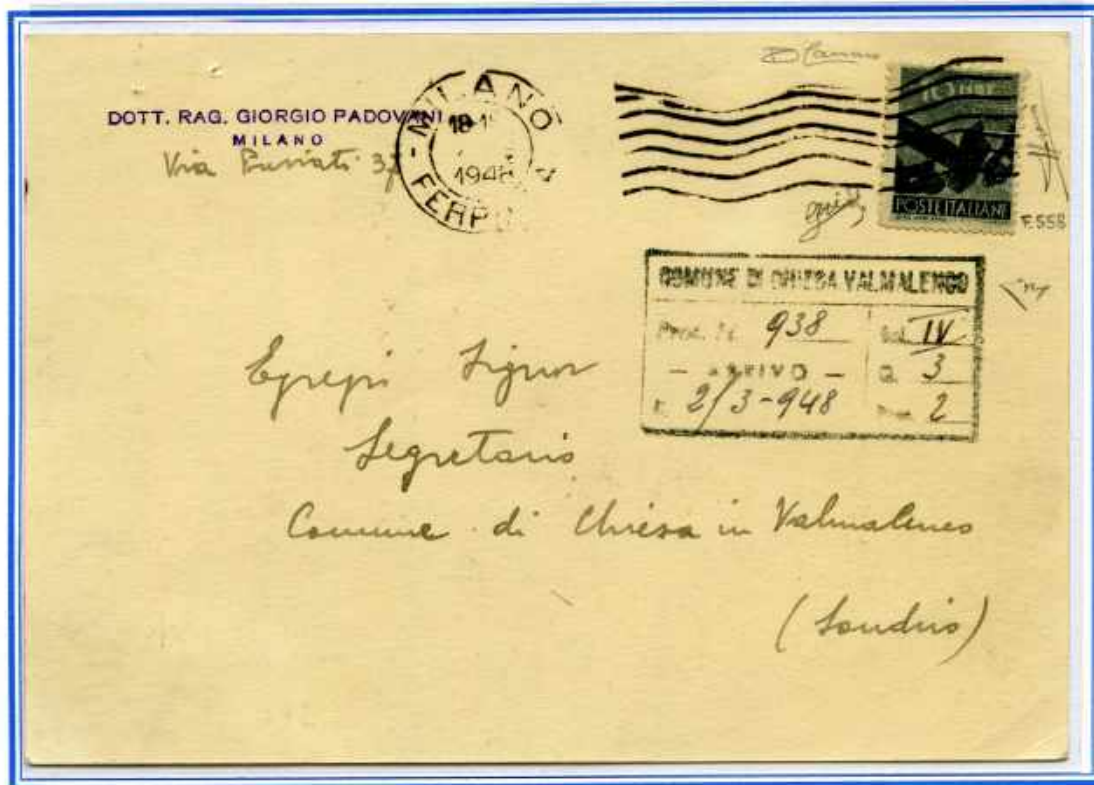 DOTT. RAG. GIORGIO PADOVANI
MILANO
Via 37
MILANO
18-1
1948
FERR
10 LIRE
POSTE ITALIANE
F. 558
COMUNE DI CHIESA VALMALENCO
Prot. N. 938
IV
- ARRIVO -
3
2/3-948
2
Egregio Signor
Segretario
Comune di Chiesa in Valmalenco
(Sondrio)